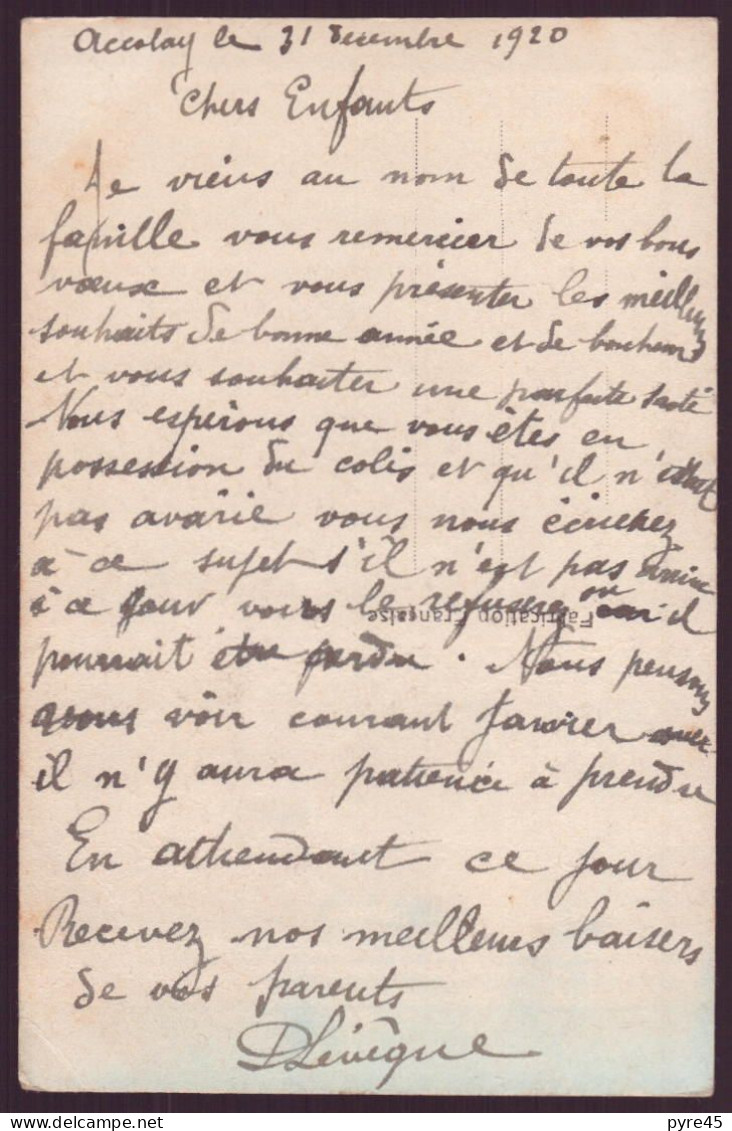 Accolay le 31 Decembre 1920
Chers Enfants
Je viens au nom de toute la
famille vous remercier de vos bons
vœux et vous présenter les meilleurs
souhaits de bonne année et de bonheur
et vous souhaiter une parfaite santé
Nous espérons que vous êtes en
possession du colis et qu'il n'était
pas avarié vous nous écrirez
à ce sujet s'il n'est pas arrivé
à ce jour vous le refuserez ou il
pourrait être perdu. Nous pensons
vous voir courant Janvier
il n'y aura patience à prendre
En attendant ce jour
Recevez nos meilleurs baisers
de vos parents
DLévêque
Fabrication Française
pyre45